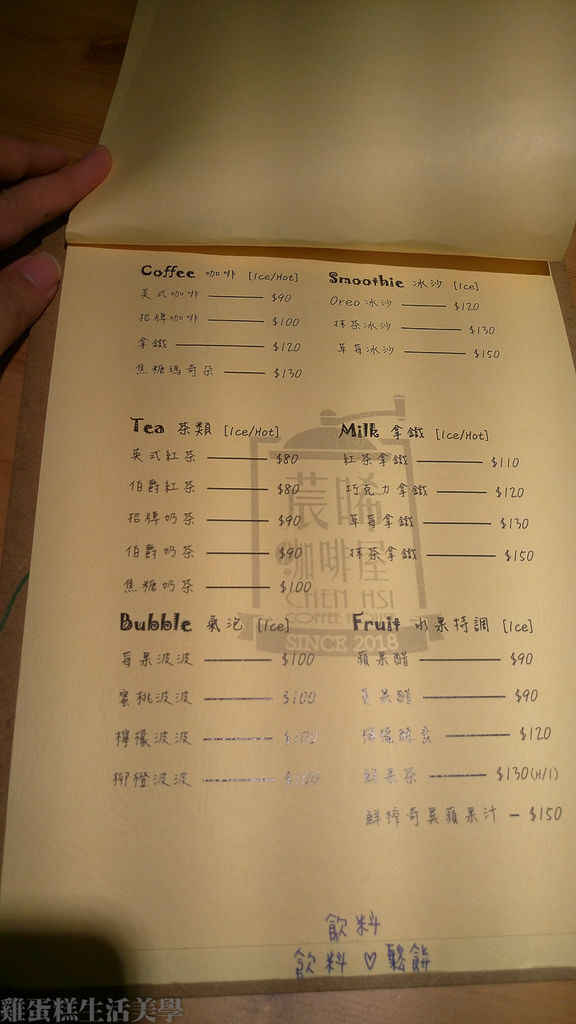 Coffee 咖啡 [Ice/Hot]
美式咖啡 $90
招牌咖啡 $100
拿鐵 $120
焦糖瑪奇朵 $130
Smoothie 冰沙 [Ice]
Oreo冰沙 $120
抹茶冰沙 $130
草莓冰沙 $150
Tea 茶類 [Ice/Hot]
英式紅茶 $80
伯爵紅茶 $80
招牌奶茶 $90
伯爵奶茶 $90
焦糖奶茶 $100
Milk 拿鐵 [Ice/Hot]
紅茶拿鐵 $110
巧克力拿鐵 $120
草莓拿鐵 $130
抹茶拿鐵 $150
農晞
咖啡屋
CHEN HSI
COFFEE HOUSE
SINCE 2018
Bubble 氣泡 [Ice]
莓果波波 $100
蜜桃波波 $100
檸檬波波 $100
柳橙波波 $100
Fruit 水果特調 [Ice]
蘋果醋 $90
果醋 $90
檸檬 $120
鮮果茶 $130(H/I)
鮮榨奇異蘋果汁 - $150
飲料
飲料 ♡ 鬆餅
雞蛋糕生活美學